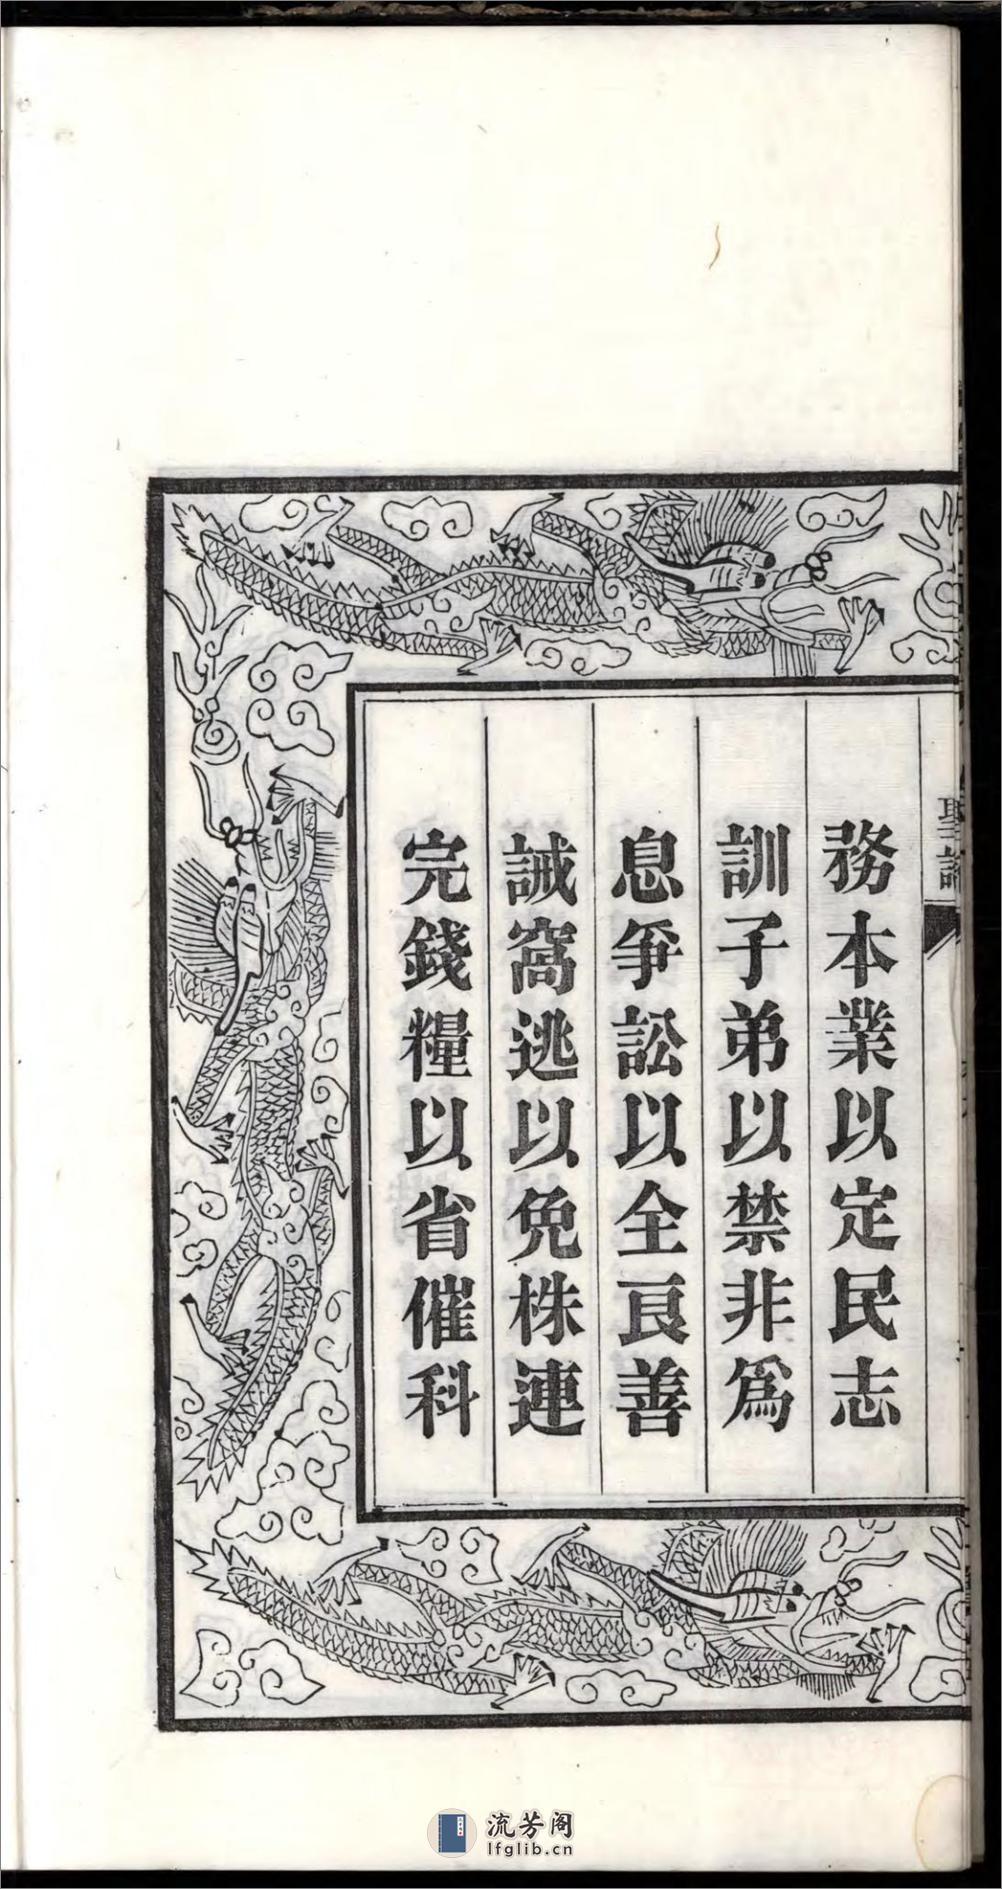 聖諭
務本業以定民志
訓子弟以禁非爲
息爭訟以全良善
誡窩逃以免株連
完錢糧以省催科
流芳阁
lfglib.cn